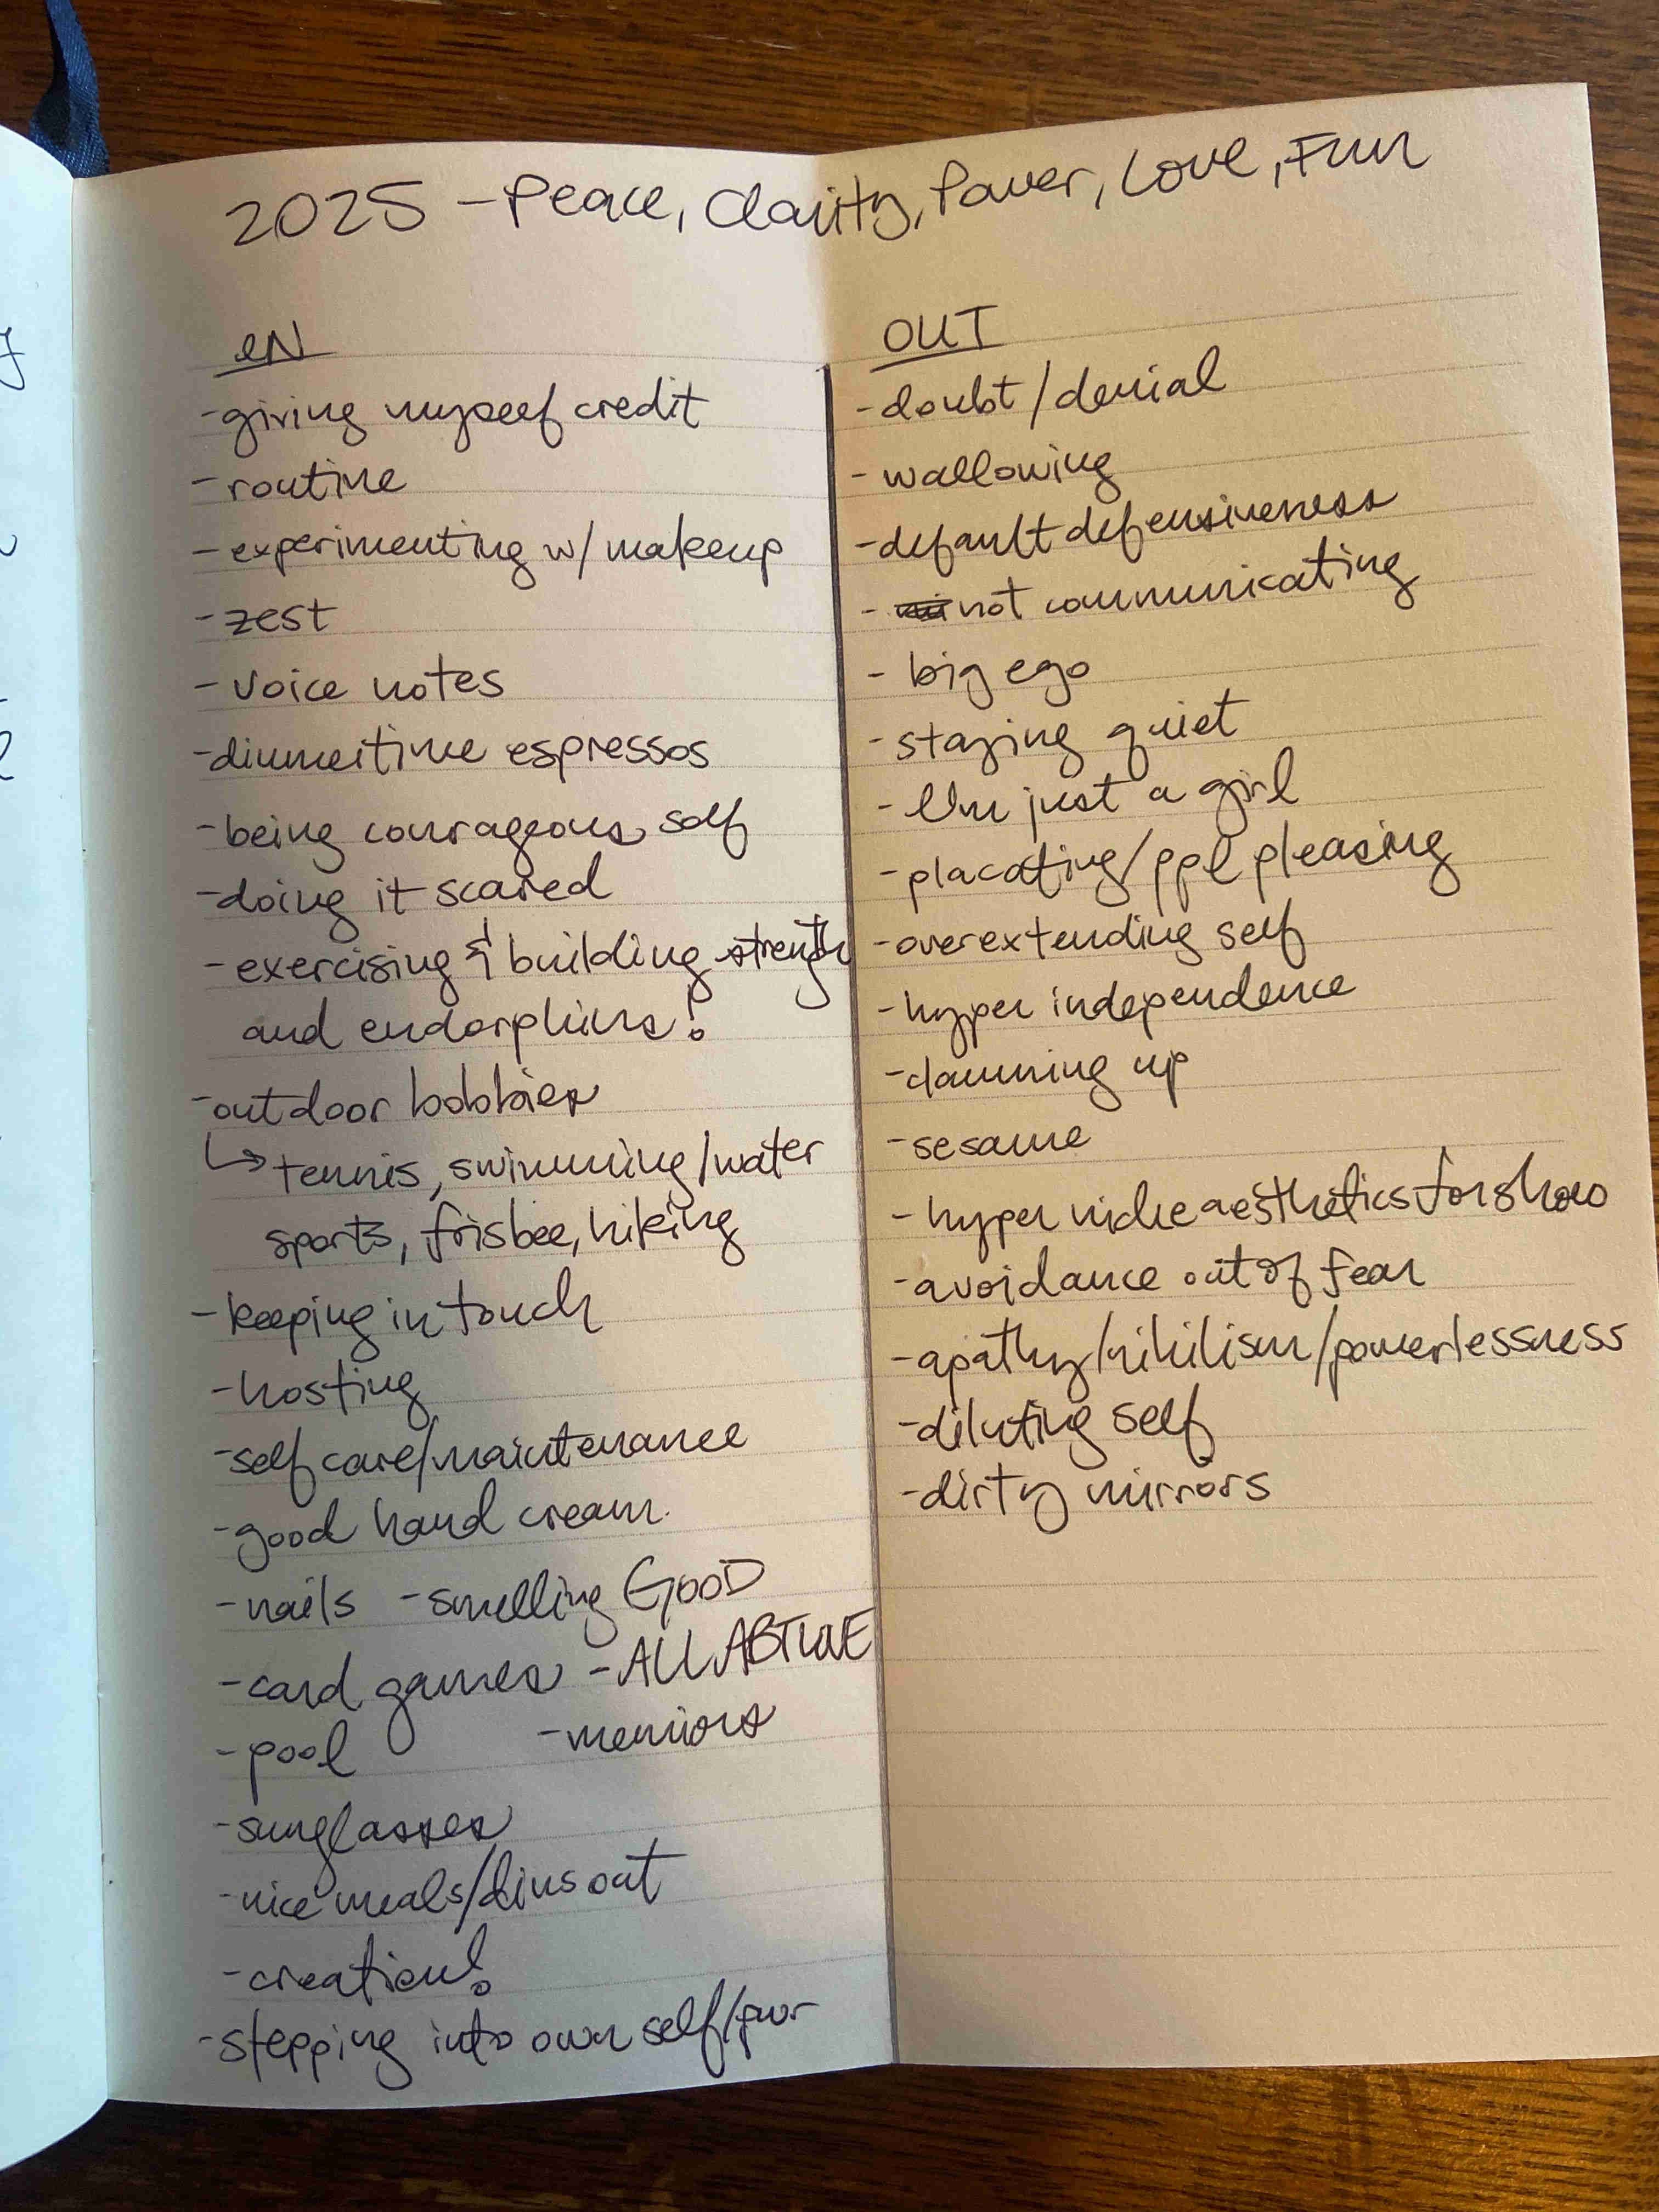 2025 - Peace, Clarity, Power, Love, Fun
IN
- giving myself credit
- routine
- experimenting w/ makeup
- zest
- voice notes
- dinnertime espressos
- being courageous self
- doing it scared
- exercising & building strength
and endorphins!
- outdoor hobbies
↳ tennis, swimming/water
sports, frisbee, hiking
- keeping in touch
- hosting
- self care/maintenance
- good hand cream.
- nails - smelling GOOD
- card games - ALL ABT LUVE
- pool - memiors
- sunglasses
- nice meals/dins out
- creation!
- stepping into own self/pwr
OUT
- doubt/denial
- wallowing
- default defensiveness
- not communicating
- big ego
- staying quiet
- I'm just a girl
- placating/ppl pleasing
- overextending self
- hyper independence
- clamming up
- sesame
- hyper niche aesthetics for show
- avoidance out of fear
- apathy/nihilism/powerlessness
- diluting self
- dirty mirrors